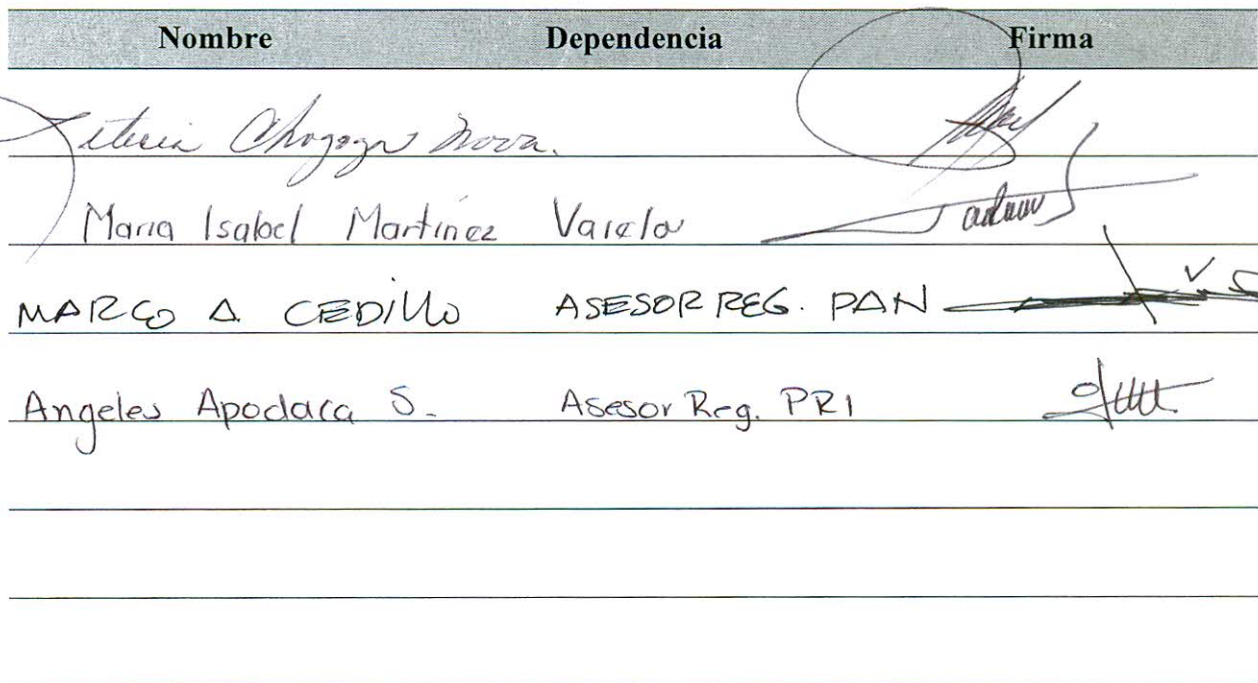 Nombre Dependencia Firma
Leticia Nova.
Maria Isabel Martinez Varela
MARCO A. CEDILLO ASESOR REG. PAN
Angeles Apodaca S. Asesor Reg. PRI